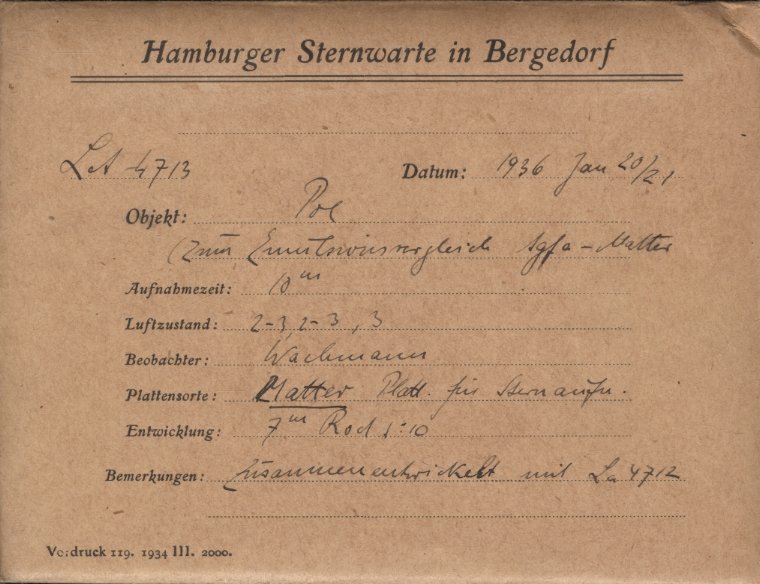 Hamburger Sternwarte in Bergedorf
LA 4713 Datum: 1936 Jan 20/21
Objekt: Pol
(zum Emulsionsvergleich Agfa-Matter
Aufnahmezeit: 10 m
Luftzustand: 2-3, 2-3, 3
Beobachter: Wachmann
Plattensorte: Matter Platt. für Sternaufn.
Entwicklung: 7 m Rod 1:10
Bemerkungen: Zusammenentwickelt mit La 4712
Vordruck 119. 1934 III. 2000.